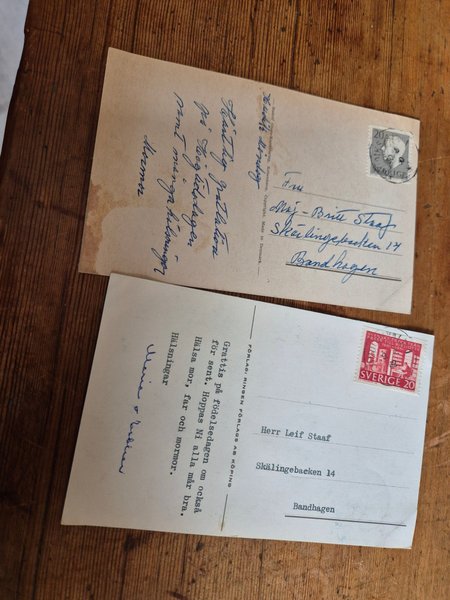 Hjärtlig gratulation
på högtidsdagen
samt många hälsningar
Mormor
Fru
Maj-Britt Staaf
Skälingebacken 14
Bandhagen
20
SVERIGE
Grattis på födelsedagen om också
för sent. Hoppas Ni alla mår bra.
Hälsa mor, far och mormor.
Hälsningar
FÖRLAG: RINGEN FÖRLAGS AB KÖPING
Herr Leif Staaf
Skälingebacken 14
Bandhagen
SVERIGE 20